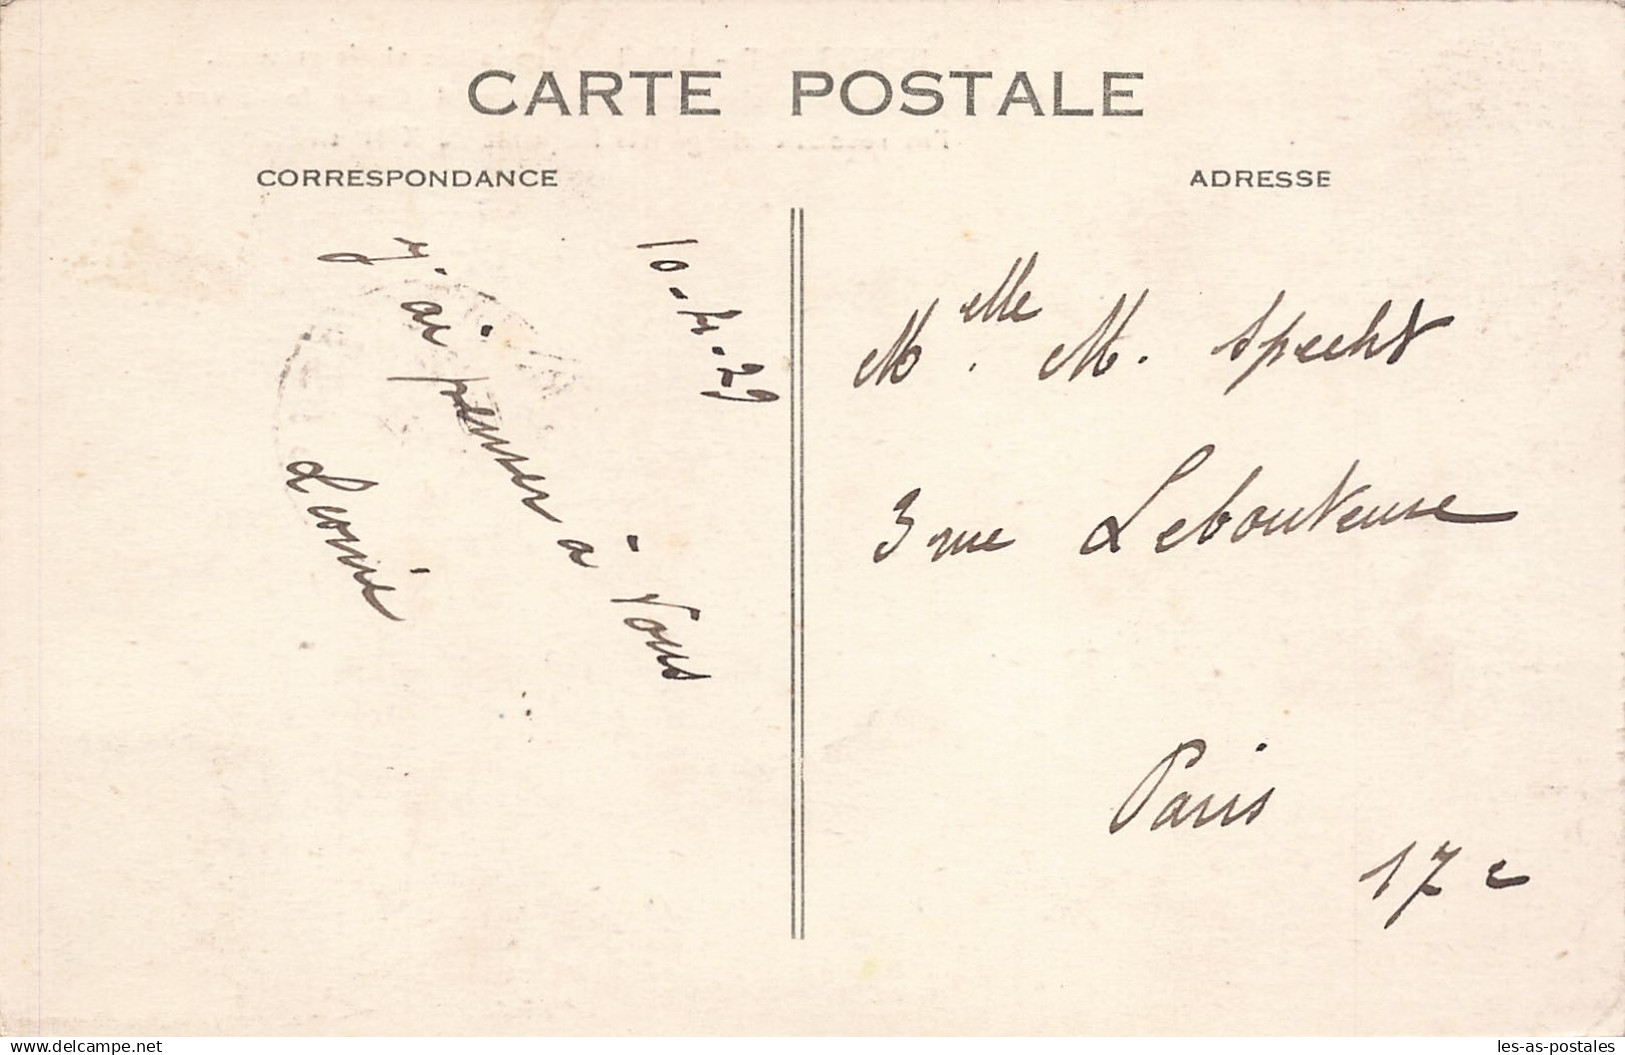 CARTE POSTALE
CORRESPONDANCE
ADRESSE
10-4-29
J'ai penser à Vous
Léonie
Melle. M. Specht
3 rue Lebouteuse
Paris
17e
www.delcampe.net
les-as-postales